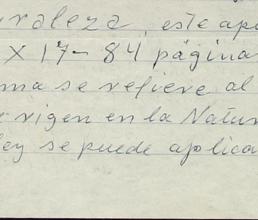 uraleza, este apa
X 17- 84 página
ma se refiere al
rigen en la Natur
ley se puede aplica